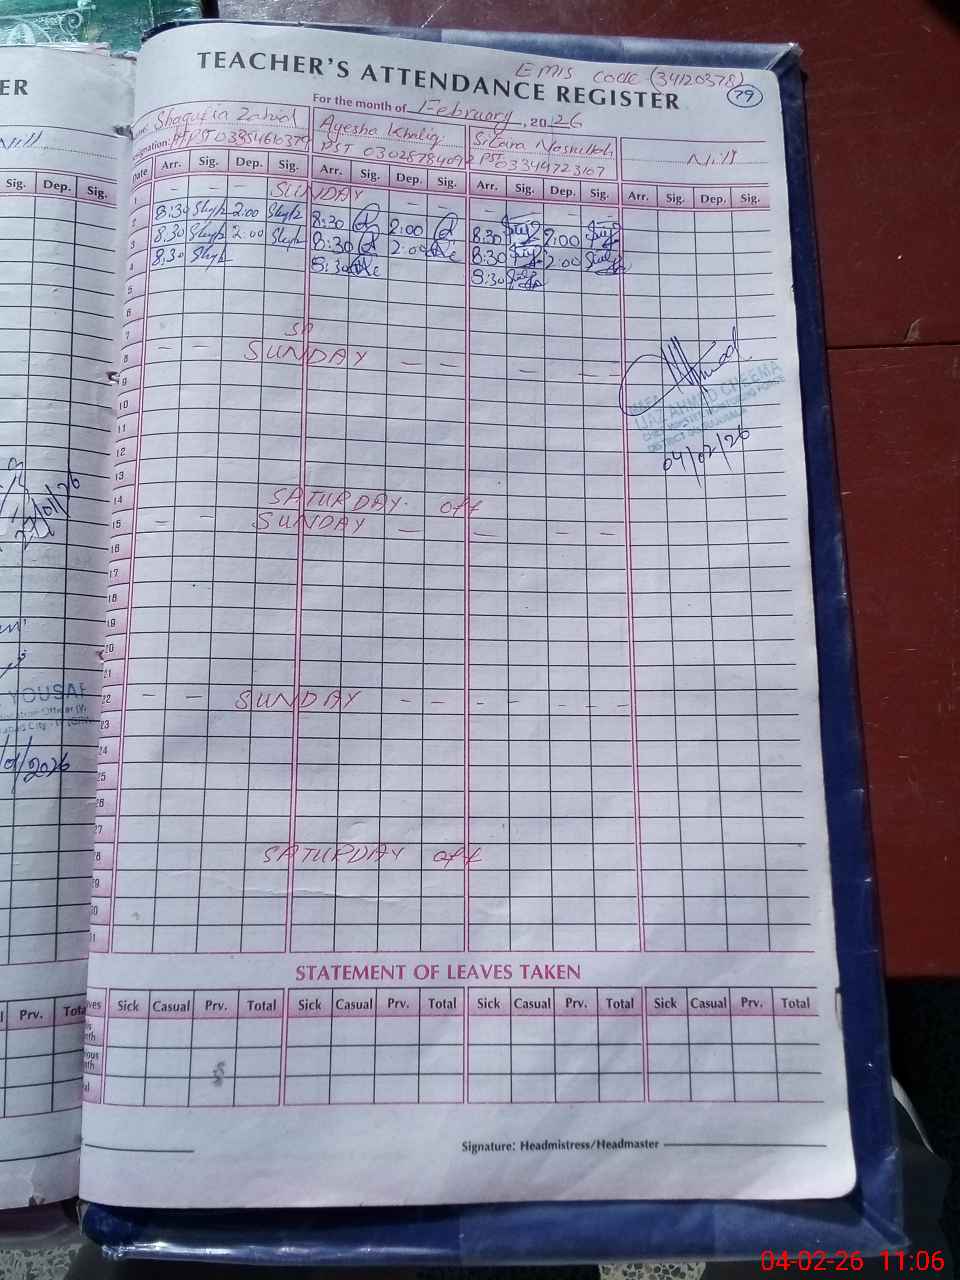 ER
Nill
Sig. Dep. Sig.
TEACHER'S ATTENDANCE REGISTER
EMIS code (34120378)
79
For the month of February, 2026
Shagufta Zahid
Ayesha Khaliq
Sitara Nasrullah
Nill
PST 03028784092
PST 03344723107
Date Arr. Sig. Dep. Sig. Arr. Sig. Dep. Sig. Arr. Sig. Dep. Sig. Arr. Sig. Dep. Sig.
1 - - - SUNDAY - - - - - -
2 8:30 2:00 8:30 2:00 8:30 2:00
3 8:30 2:00 8:30 2:00 8:30 2:00
4 8:30 8:30 8:30
5
6
7 SA
8 - - SUNDAY - - - - - -
9
10
11
12
13
14 SATURDAY. off
15 - - SUNDAY - - - -
16
17
18
19
20
21
22 - - SUNDAY - - - - - -
23
24
25
26
27
28 SATURDAY off
29
30
31
AHMAD CHEEMA
04/02/26
/01/26
YOUSAF
/01/2026
STATEMENT OF LEAVES TAKEN
Prv. Total
Leaves Sick Casual Prv. Total Sick Casual Prv. Total Sick Casual Prv. Total Sick Casual Prv. Total
Signature: Headmistress/Headmaster
04-02-26 11:06